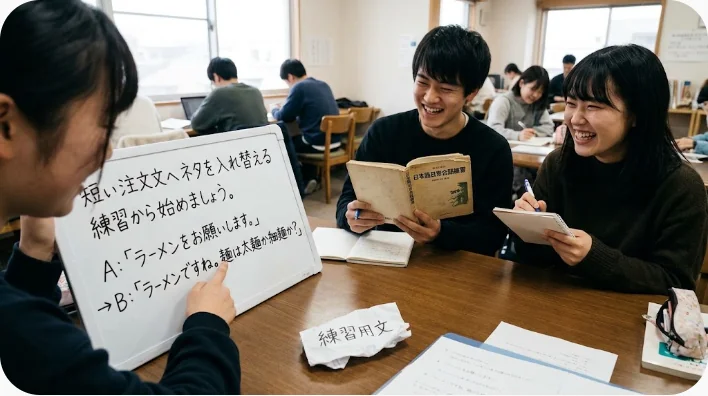 短い注文文へネタを入れ替える
練習から始めましょう。
A:「ラーメンをお願いします。」
→B:「ラーメンですね。麺は太麺か細麺か?」
練習用文